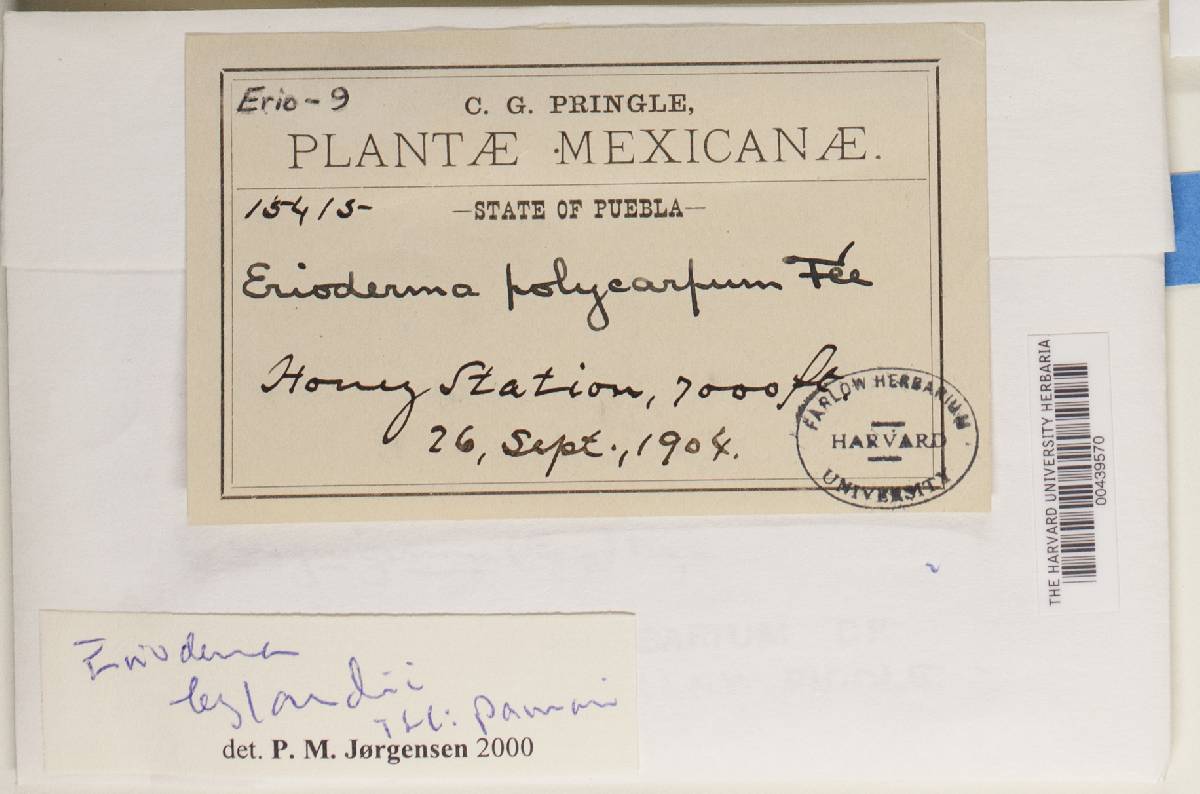 Erio-9
C. G. PRINGLE,
PLANTÆ MEXICANÆ.
15415-
—STATE OF PUEBLA—
Erioderma polycarpum Fée
Honey Station, 7000 ft.
26, Sept., 1904.
FARLOW HERBARIUM
HARVARD
UNIVERSITY
THE HARVARD UNIVERSITY HERBARIA
00439570
Erioderma
leylandii
det. P. M. Jørgensen 2000